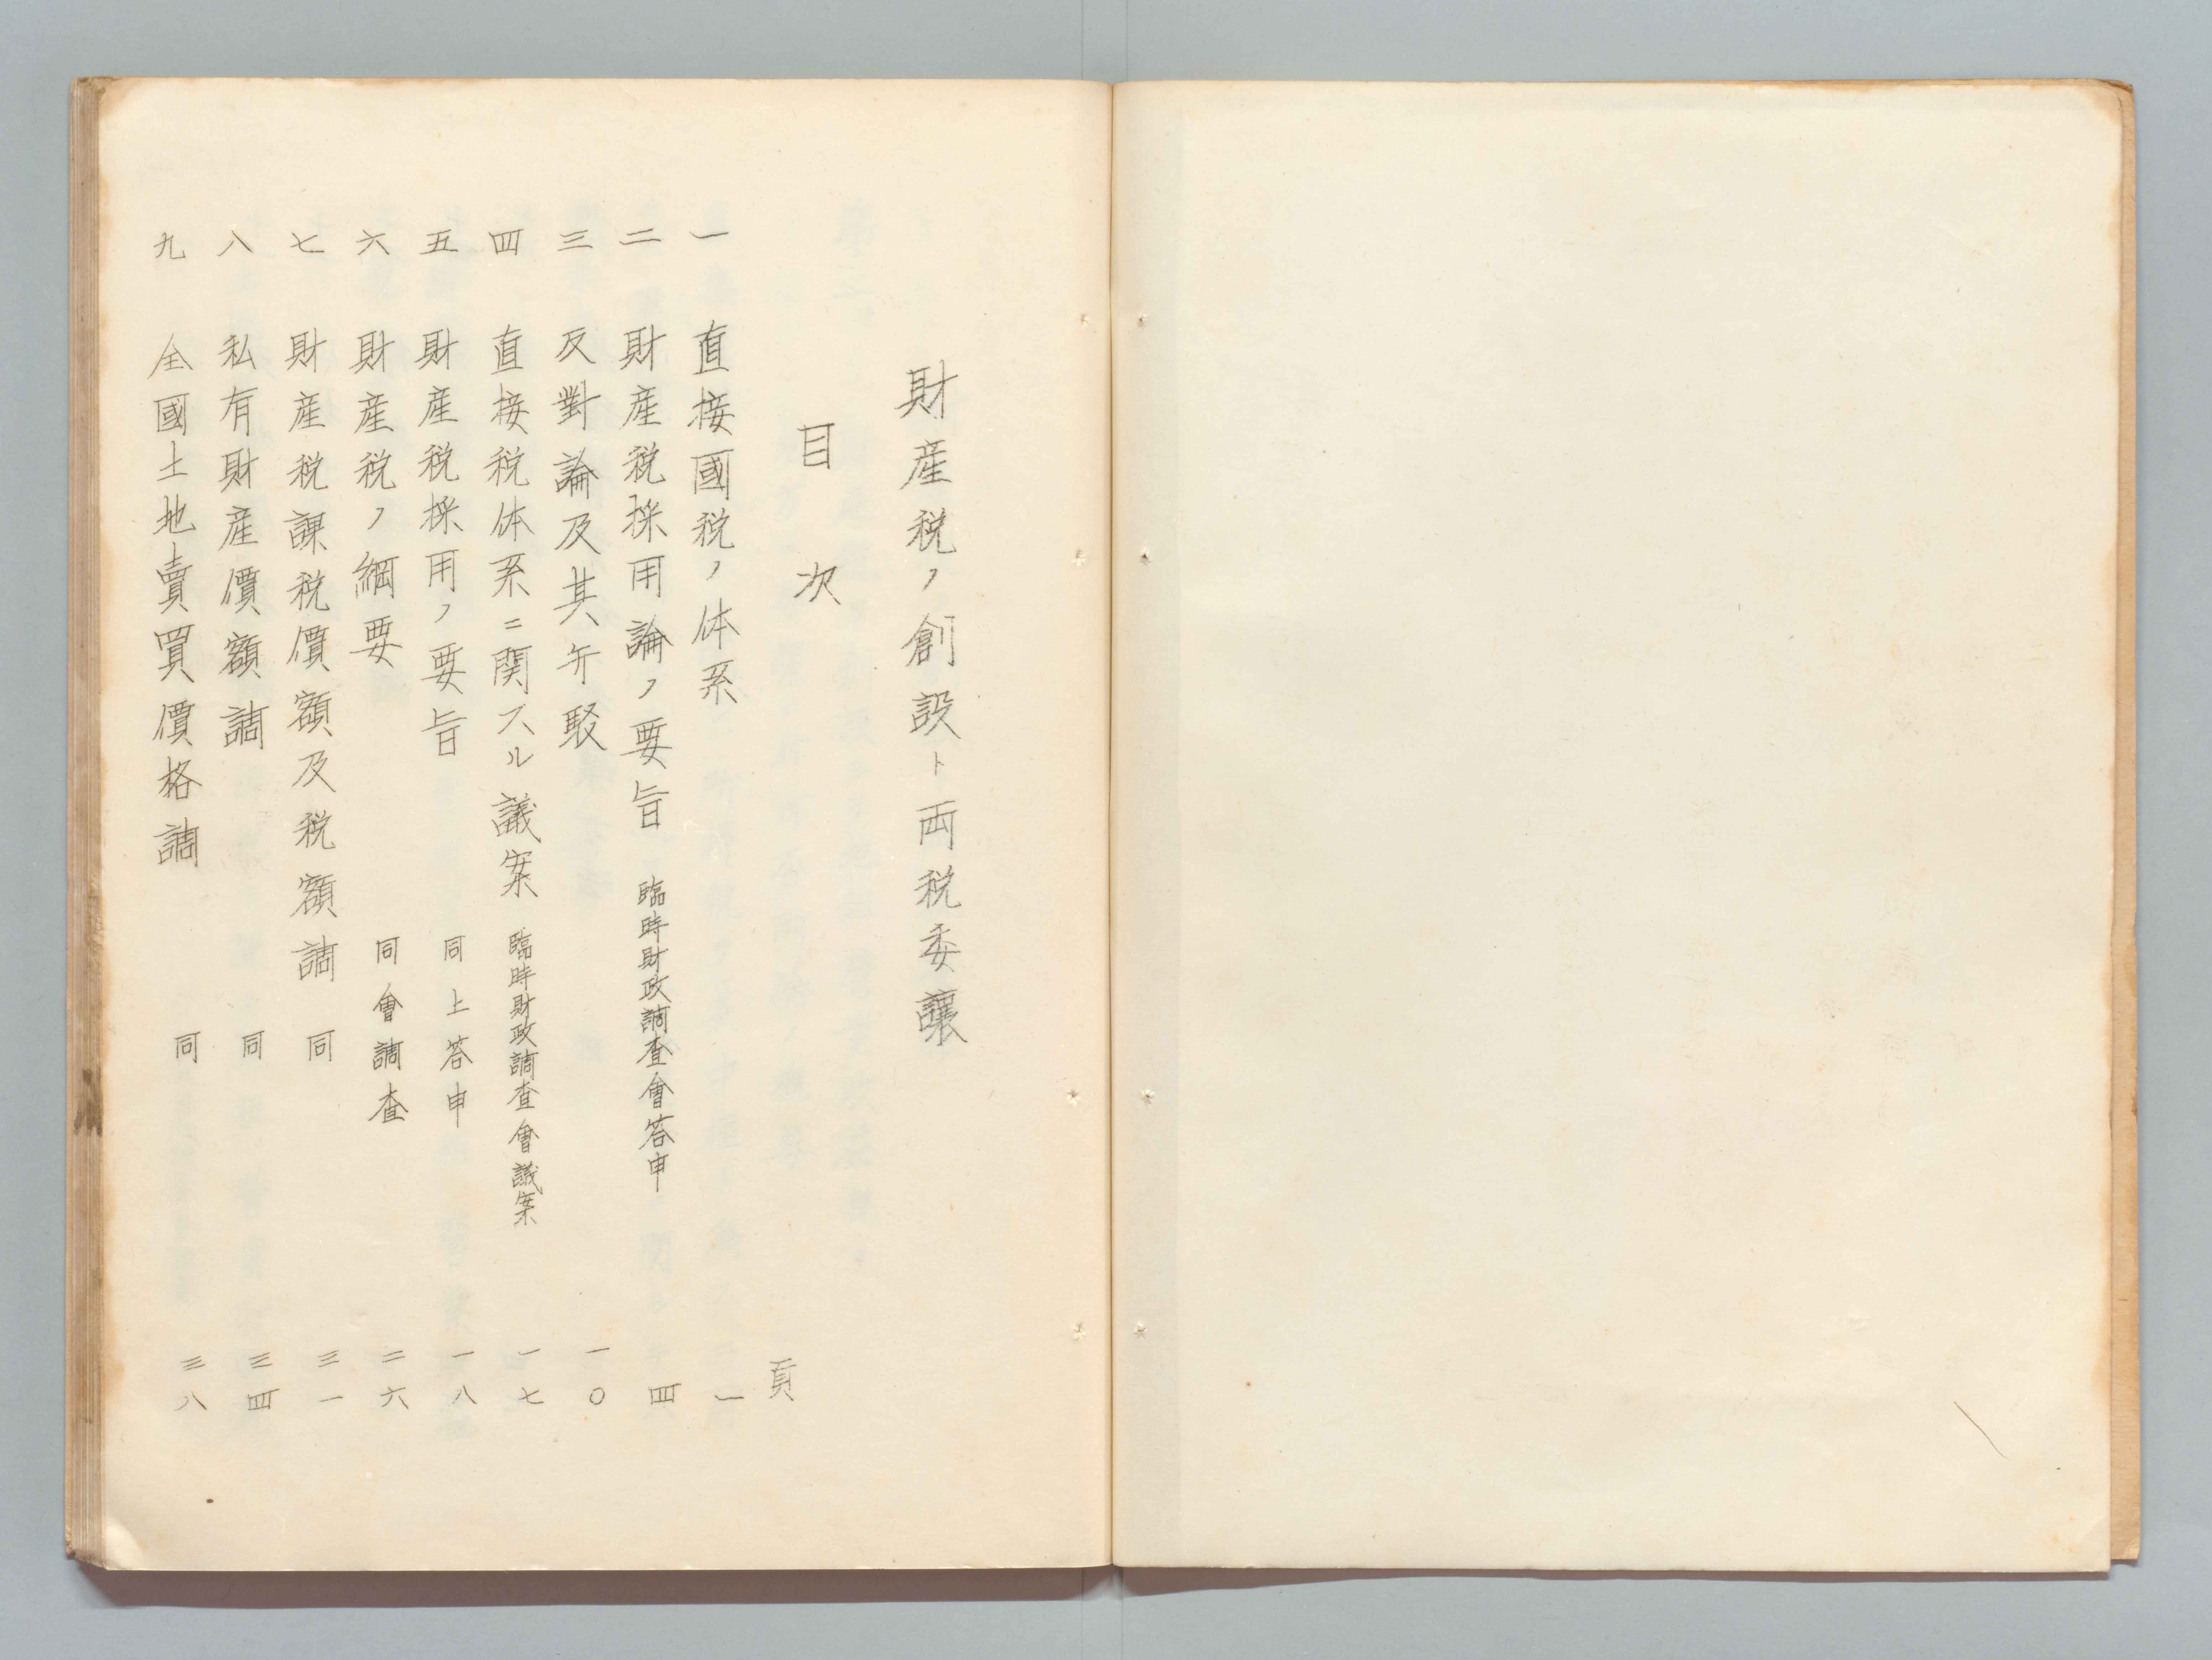 財産税ノ創設ト両税委讓
目次
頁
一 直接國税ノ体系 一
二 財産税採用論ノ要旨 臨時財政調査會答申 四
三 反對論及其弁駁 一〇
四 直接税体系ニ関スル議案 臨時財政調査會議案 一七
五 財産税採用ノ要旨 同上答申 一八
六 財産税ノ綱要 同會調査 二六
七 財産税課税價額及税額調 同 三一
八 私有財産價額調 同 三四
九 全國土地賣買價格調 同 三八